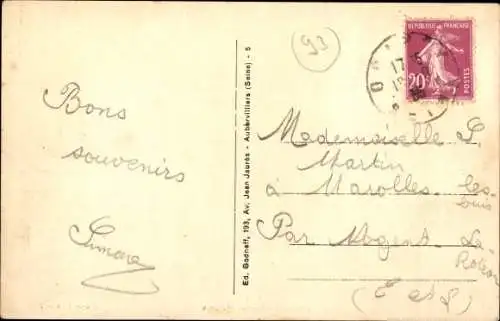 93
Bons
souvenirs
Simone
Ed. Godneff, 193, Av. Jean Jaurès - Aubervilliers (Seine) - 5
REPUBLIQUE FRANÇAISE
20c
POSTES
17
Mademoiselle S.
Martin
à Marolles-les-
buis
Par Nogent-Le-
Rotrou
(E et L)